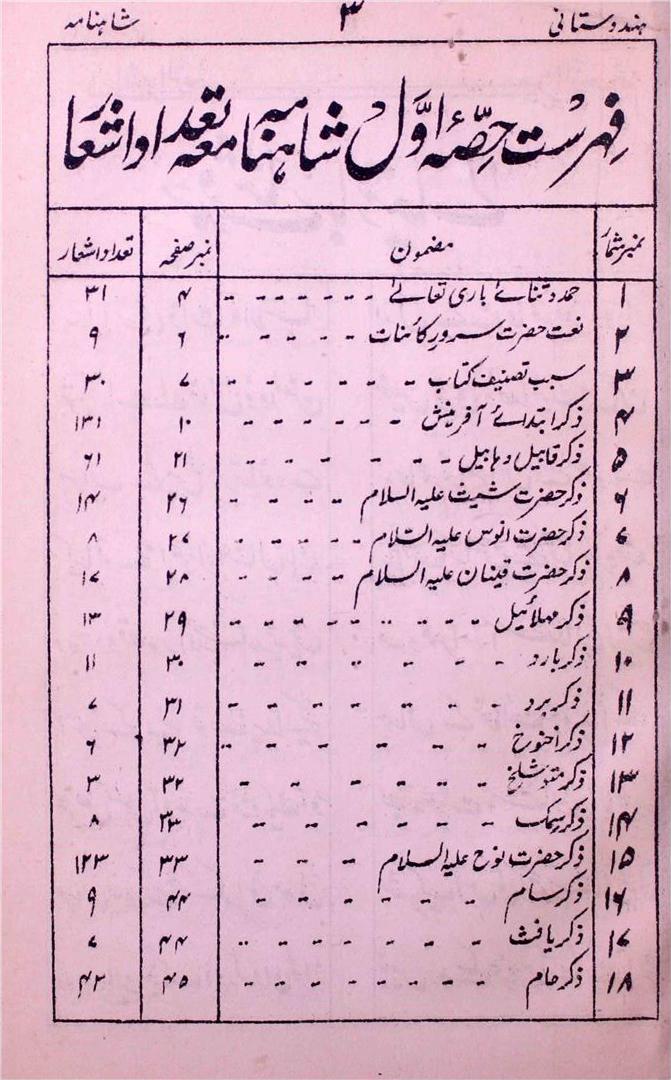 ہندوستانی ۳ شاہنامہ
فہرست حصّۂ اوّل شاہنامہ معہ تعداد اشعار
نمبر شمار مضمون نمبر صفحہ تعداد اشعار
۱ حمد و ثنائے باری تعالےٰ ۴ ۳۱
۲ نعت حضرت سرور کائنات ۶ ۹
۳ سبب تصنیف کتاب ۷ ۳۰
۴ ذکر ابتدائے آفرینش ۱۰ ۱۳۱
۵ ذکر قابیل و ہابیل ۲۱ ۶۱
۶ ذکر حضرت شیث علیہ السلام ۲۶ ۱۴
۷ ذکر حضرت انوس علیہ السّلام ۲۷ ۸
۸ ذکر حضرت قینان علیہ السلام ۲۸ ۱۷
۹ ذکر مہلائیل ۲۹ ۱۳
۱۰ ذکر یارد ۳۰ ۱۱
۱۱ ذکر برد ۳۱ ۷
۱۲ ذکر اخنوخ ۳۲ ۶
۱۳ ذکر متوشلخ ۳۲ ۳
۱۴ ذکر یمک ۳۳ ۸
۱۵ ذکر حضرت نوح علیہ السلام ۳۳ ۱۲۳
۱۶ ذکر سام ۴۴ ۹
۱۷ ذکر یافث ۴۴ ۷
۱۸ ذکر حام ۴۵ ۴۲